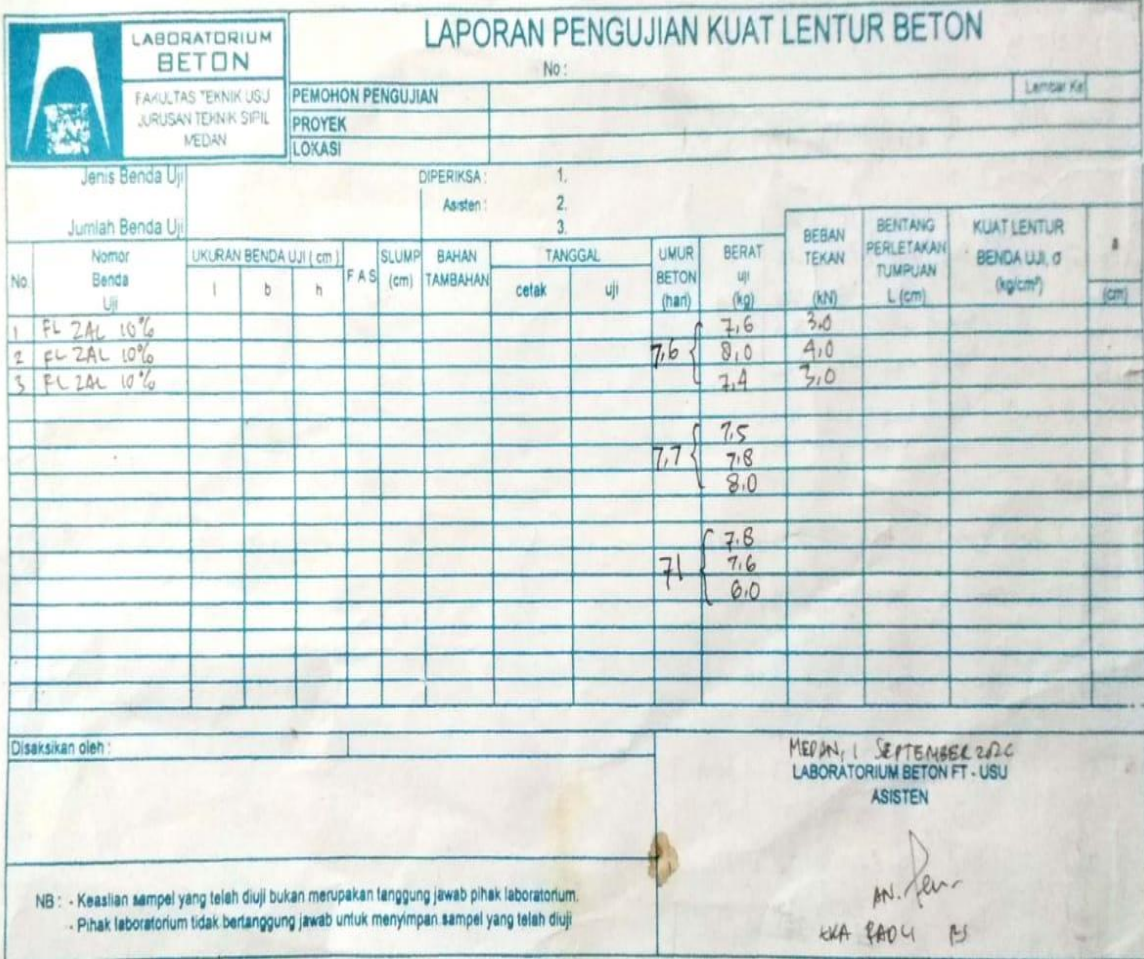 LABORATORIUM
BETON
FAKULTAS TEKNIK USU
JURUSAN TEKNIK SIPIL
MEDAN
LAPORAN PENGUJIAN KUAT LENTUR BETON
No :
Lembar Ke
PEMOHON PENGUJIAN
PROYEK
LOKASI
Jenis Benda Uji
Jumlah Benda Uji
DIPERIKSA : 1.
Asisten : 2.
3.
No. Nomor Benda Uji UKURAN BENDA UJI ( cm ) l b h F A S SLUMP (cm) BAHAN TAMBAHAN TANGGAL cetak uji UMUR BETON (hari) BERAT uji (kg) BEBAN TEKAN (kN) BENTANG PERLETAKAN TUMPUAN L (cm) KUAT LENTUR BENDA UJI, σ (kg/cm²) a (cm)
1 FL ZAL 10% 7,6 3,0
2 FL ZAL 10% 7,6 8,0 4,0
3 FL ZAL 10% 7,4 3,0
7,5
7,7 7,8
8,0
7,8
71 7,6
8,0
Disaksikan oleh :
MEDAN, 1 SEPTEMBER
LABORATORIUM BETON FT - USU
ASISTEN
AN.
NB : - Keaslian sampel yang telah diuji bukan merupakan tanggung jawab pihak laboratorium.
- Pihak laboratorium tidak bertanggung jawab untuk menyimpan sampel yang telah diuji